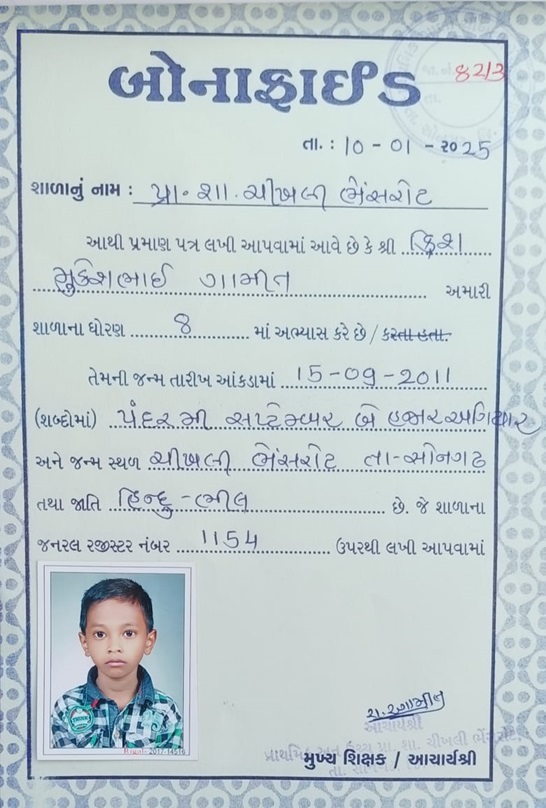 બોનાફાઈડ
8213
તા. : 10 - 01 - ૨૦25
શાળાનું નામ : પ્રા. શા. ચીખલી ભેંસરોટ
આથી પ્રમાણ પત્ર લખી આપવામાં આવે છે કે શ્રી ક્રિશ
મુકેશભાઈ ગામીત અમારી
શાળાના ધોરણ 8 માં અભ્યાસ કરે છે / કરતા હતા.
તેમની જન્મ તારીખ આંકડામાં 15-09-2011
(શબ્દોમાં) પંદરમી સપ્ટેમ્બર બે હજાર અગિયાર
અને જન્મ સ્થળ ચીખલી ભેંસરોટ તા-સોનગઢ
તથા જાતિ હિન્દુ-ભીલ છે. જે શાળાના
જનરલ રજીસ્ટર નંબર 1154 ઉપરથી લખી આપવામાં
આચાર્યશ્રી
મુખ્ય શિક્ષક / આચાર્યશ્રી